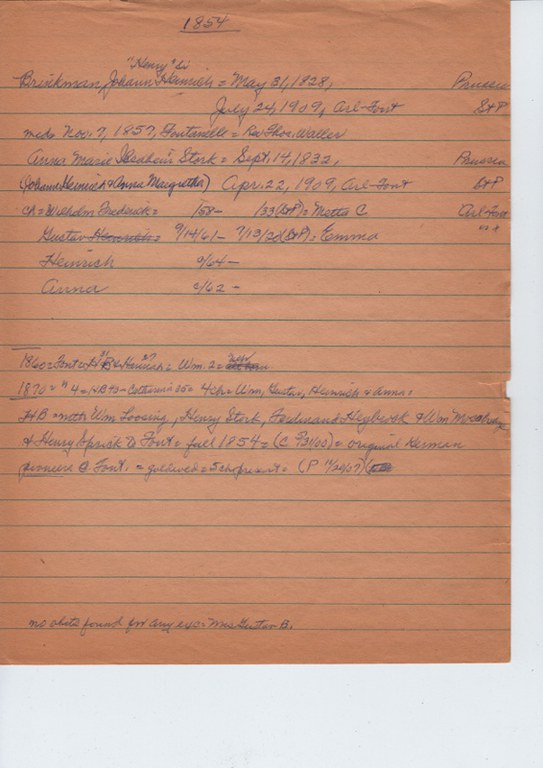 1854
"Henry" Sr
Brinkman, Johann Heinrich = May 31, 1828, Prussia
July 24, 1909, Arl-Font B+P
md. Nov. 7, 1857, Fontanelle = Rev. Thos. Waller
Anna Marie Stork = Sept. 14, 1832, Prussia
(Johann Heinrich & Anna Margretha) Apr. 22, 1909, Arl-Font B+P
ch = Wilhelm Frederick = /58 - /33 (B+P) = Metta C Arl-Font
Gustav Heinrich = 9/14/61 - 7/13/20 (B+P) = Emma " "
Heinrich /64 -
Anna /62 -
1860 = Font = & Hannah 27 Wm. 2 =
1870 = " 4 = HB 43 - Catherine 35 = 4 ch = Wm, Gustav, Heinrich & Anna =
HB = with Wm Loosing, Henry Stork, Ferdinand Heybrook & Wm
& Henry Sprick @ Font = fall 1854 = = original German
pioneers @ Font. = gold wed = 5 ch present = (P 11/20/07)
no obits found for any exc = Mrs Gustav B.